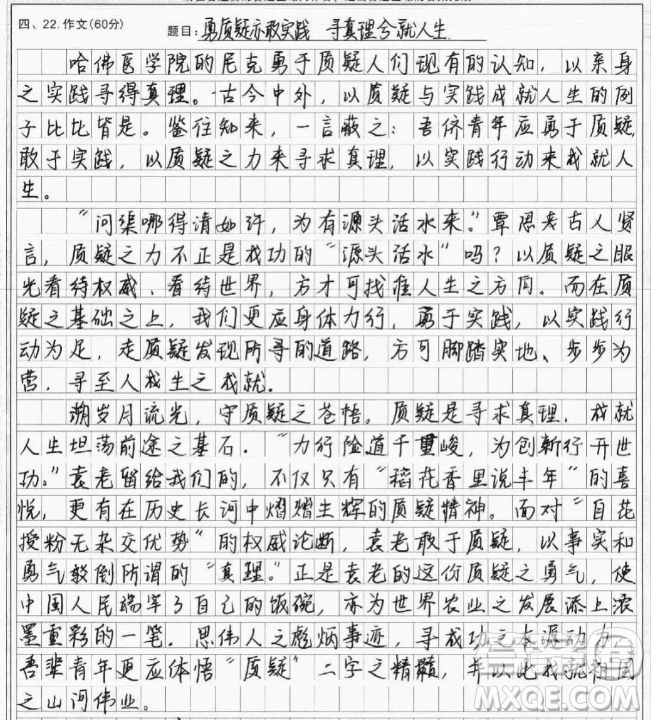 四、22.作文(60分)
题目：勇质疑亦敢实践 寻真理今就人生
哈佛医学院的尼克勇于质疑人们现有的认知，以亲身
之实践寻得真理。古今中外，以质疑与实践成就人生的例
子比比皆是。鉴往知来，一言蔽之：吾侪青年应勇于质疑，
敢于实践，以质疑之力来寻求真理，以实践行动来成就人
生。
“问渠哪得清如许，为有源头活水来。”覃思考古人贤
言，质疑之力不正是成功的“源头活水”吗？以质疑之眼
光看待权威、看待世界，方才可找准人生之方向。而在质
疑之基础之上，我们更应身体力行，勇于实践，以实践行
动为足，走质疑发现所寻的道路，方可脚踏实地、步步为
营，寻至人成生之成就。
溯岁月流光，守质疑之苍梧。质疑是寻求真理、成就
人生坦荡前途之基石。“力行险道千重峻，为创新行开世
功。”袁老留给我们的，不仅只有“稻花香里说丰年”的喜
悦，更有在历史长河中熠熠生辉的质疑精神。面对“自花
授粉无杂交优势”的权威论断，袁老敢于质疑，以事实和
勇气毅倒所谓的“真理。”正是袁老的这份质疑之勇气，使
中国人民端牢了自己的饭碗，亦为世界农业之发展添上浓
墨重彩的一笔。思伟人之彪炳事迹，寻成功之本源动力，
吾辈青年更应体悟“质疑”二字之精髓，并以此成就祖国
之山河伟业。
MXQE.COM